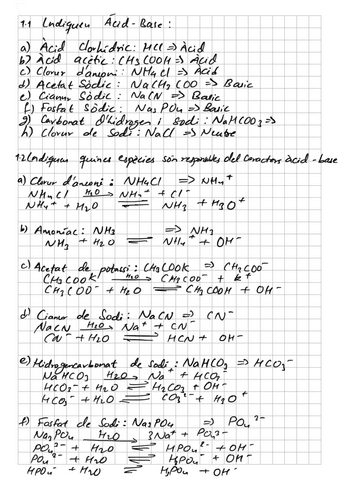 1.1 Indiqueu Àcid-Base:
a) Àcid Clorhídric: HCl => Àcid
b) Àcid acètic: CH3COOH => Àcid
c) Clorur d'amoni: NH4Cl => Àcid
d) Acetat Sòdic: NaCH3COO => Basic
e) Cianur Sòdic: NaCN => Basic
f) Fosfat Sòdic: Na3PO4 => Basic
g) Carbonat d'hidrogen i sodi: NaHCO3 =>
h) Clorur de Sodi: NaCl => Neutre
1.2 Indiqueu quines espècies són responsables del caràcter àcid-base
a) Clorur d'amoni: NH4Cl => NH4+
NH4Cl H2O → NH4+ + Cl-
NH4+ + H2O ⇌ NH3 + H3O+
b) Amoníac: NH3 => NH3
NH3 + H2O ⇌ NH4+ + OH-
c) Acetat de potassi: CH3COOK => CH3COO-
CH3COOK H2O → CH3COO- + K+
CH3COO- + H2O ⇌ CH3COOH + OH-
d) Cianur de Sodi: NaCN => CN-
NaCN H2O → Na+ + CN-
CN- + H2O ⇌ HCN + OH-
e) Hidrogencarbonat de sodi: NaHCO3 => HCO3-
NaHCO3 H2O → Na+ + HCO3-
HCO3- + H2O ⇌ H2CO3 + OH-
HCO3- + H2O ⇌ CO32- + H3O+
f) Fosfat de Sodi: Na3PO4 => PO4 3-
Na3PO4 H2O → 3Na+ + PO4 3-
PO4 3- + H2O ⇌ HPO4 2- + OH-
+ H2O ⇌ H2PO4- + OH-
+ H2O ⇌ H3PO4 + OH-